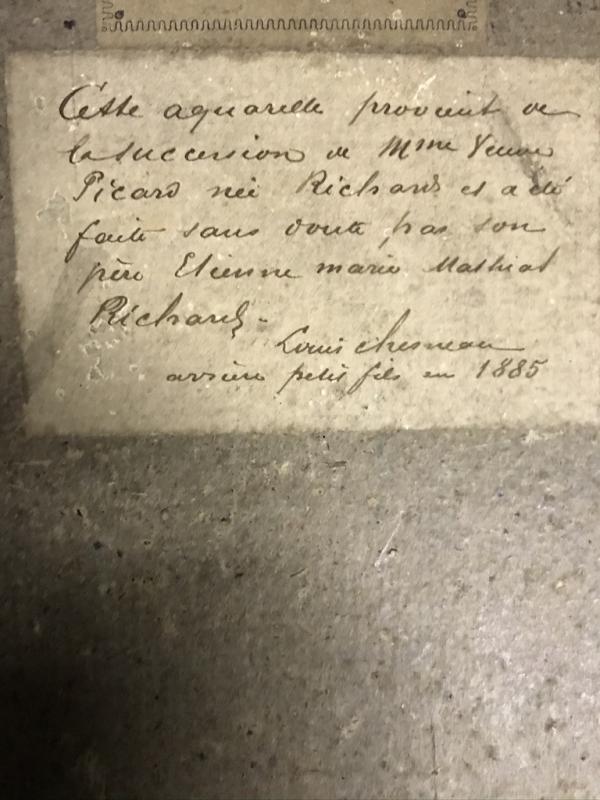 Cette aquarelle provient de
la succession de Mme Veuve
Picard née Richard et a été
faite sans doute par son
père Etienne marie Mathias
Richard -
Louis chesneau
arrière petit fils en 1885